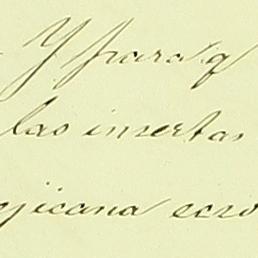 Y para q
las insertas
ejicana